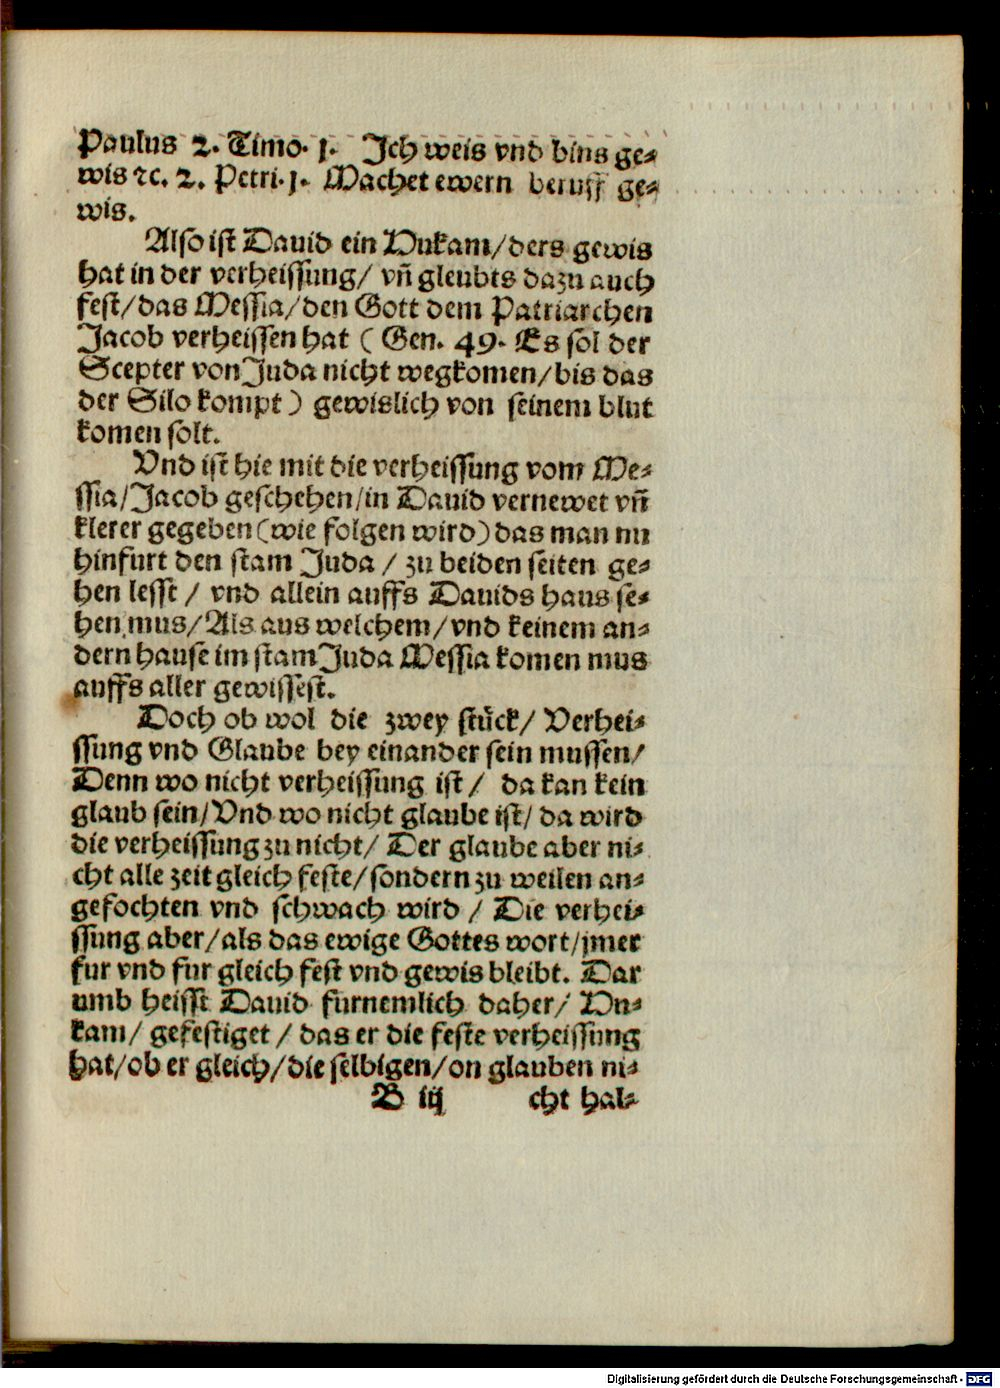 Paulus 2. Timo. j. Ich weis vnd bins ge⸗
wis ꝛc. 2. Petri. j. Machet ewern beruff ge⸗
wis.
Also ist Dauid ein Hukam/ders gewis
hat in der verheissung/ vn̄ gleubts dazu auch
fest/das Messia/den Gott dem Patriarchen
Jacob verheissen hat ( Gen. 49. Es sol der
Scepter von Juda nicht wegkomen/bis das
der Silo kompt ) gewislich von seinem blut
komen solt.
Vnd ist hie mit die verheissung vom Me⸗
ssia/Jacob geschehen/in Dauid vernewet vn̄
klerer gegeben (wie folgen wird) das man nu
hinfurt den stam Juda / zu beiden seiten ge⸗
hen lesst / vnd allein auffs Dauids haus se⸗
hen mus/Als aus welchem/vnd keinem an⸗
dern hause im stam Juda Messia komen mus
auffs aller gewissest.
Doch ob wol die zwey stück/ Verhei⸗
ssung vnd Glaube bey einander sein mussen/
Denn wo nicht verheissung ist / da kan kein
glaub sein/Vnd wo nicht glaube ist/ da wird
die verheissung zu nicht/ Der glaube aber ni⸗
cht alle zeit gleich feste/sondern zu weilen an⸗
gefochten vnd schwach wird / Die verhei⸗
ssung aber/als das ewige Gottes wort/jmer
fur vnd fur gleich fest vnd gewis bleibt. Dar
umb heisst Dauid furnemlich daher/ Hu⸗
kam/ gefestiget / das er die feste verheissung
hat/ob er gleich/die selbigen/on glauben ni⸗
B iij cht hal⸗
Digitalisierung gefördert durch die Deutsche Forschungsgemeinschaft - DFG